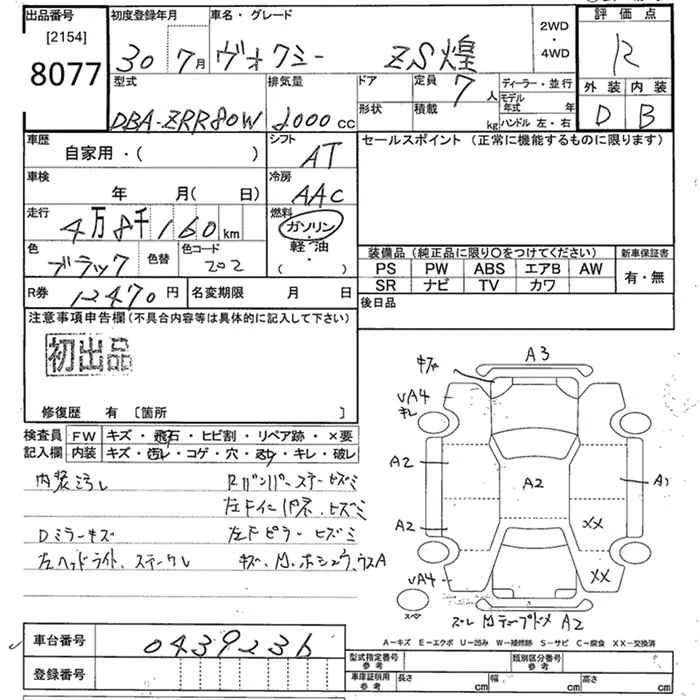 出品番号 初度登録年月 車名・グレード 2WD・4WD 評価点
[2154]
8077 30年7月 ヴォクシー ZS煌 R
外装 内装
D B
型式 排気量 ドア 定員 7人 ディーラー・並行
DBA-ZRR80W 2000cc 形状 積載 kg モデル年式 年
ハンドル 左・右
車歴 シフト セールスポイント (正常に機能するものに限ります)
自家用・( ) AT
車検 冷房
年 月( 日) AAC
走行 燃料
4万8千160km ガソリン・軽油・( )
色 色替 色コード
ブラック 202
装備品 (純正品に限り〇をつけてください) 新車保証書
PS PW ABS エアB AW 有・無
SR ナビ TV カワ
R券 12470円 名変期限 月 日 後日品
注意事項申告欄(不具合内容等は具体的に記入して下さい)
初出品
修復歴 有 〔箇所 〕
検査員 FW キズ・飛石・ヒビ割・リペア跡・×要
記入欄 内装 キズ・汚レ・コゲ・穴・ヌレ・キレ・破レ
内装ヨゴレ Rバンパーステーヒズミ
左Fインパネ、ヒズミ
Dミラーキズ 左Fピラーヒズミ
左ヘッドライト、ステーキレ キズ、M、ホシュウ、ウスA
A3
キズ
UA4
キレ
A2
A2
A1
A2
XX
XX
UA4
スペア
ズレ Mテープドメ A2
A-キズ E-エクボ U-凹み W-補修跡 S-サビ C-腐食 XX-交換済
車台番号 0439236
登録番号
型式指定番号 参考 類別区分番号 参考
車庫証明用 参考 長さ cm 幅 cm 高さ cm